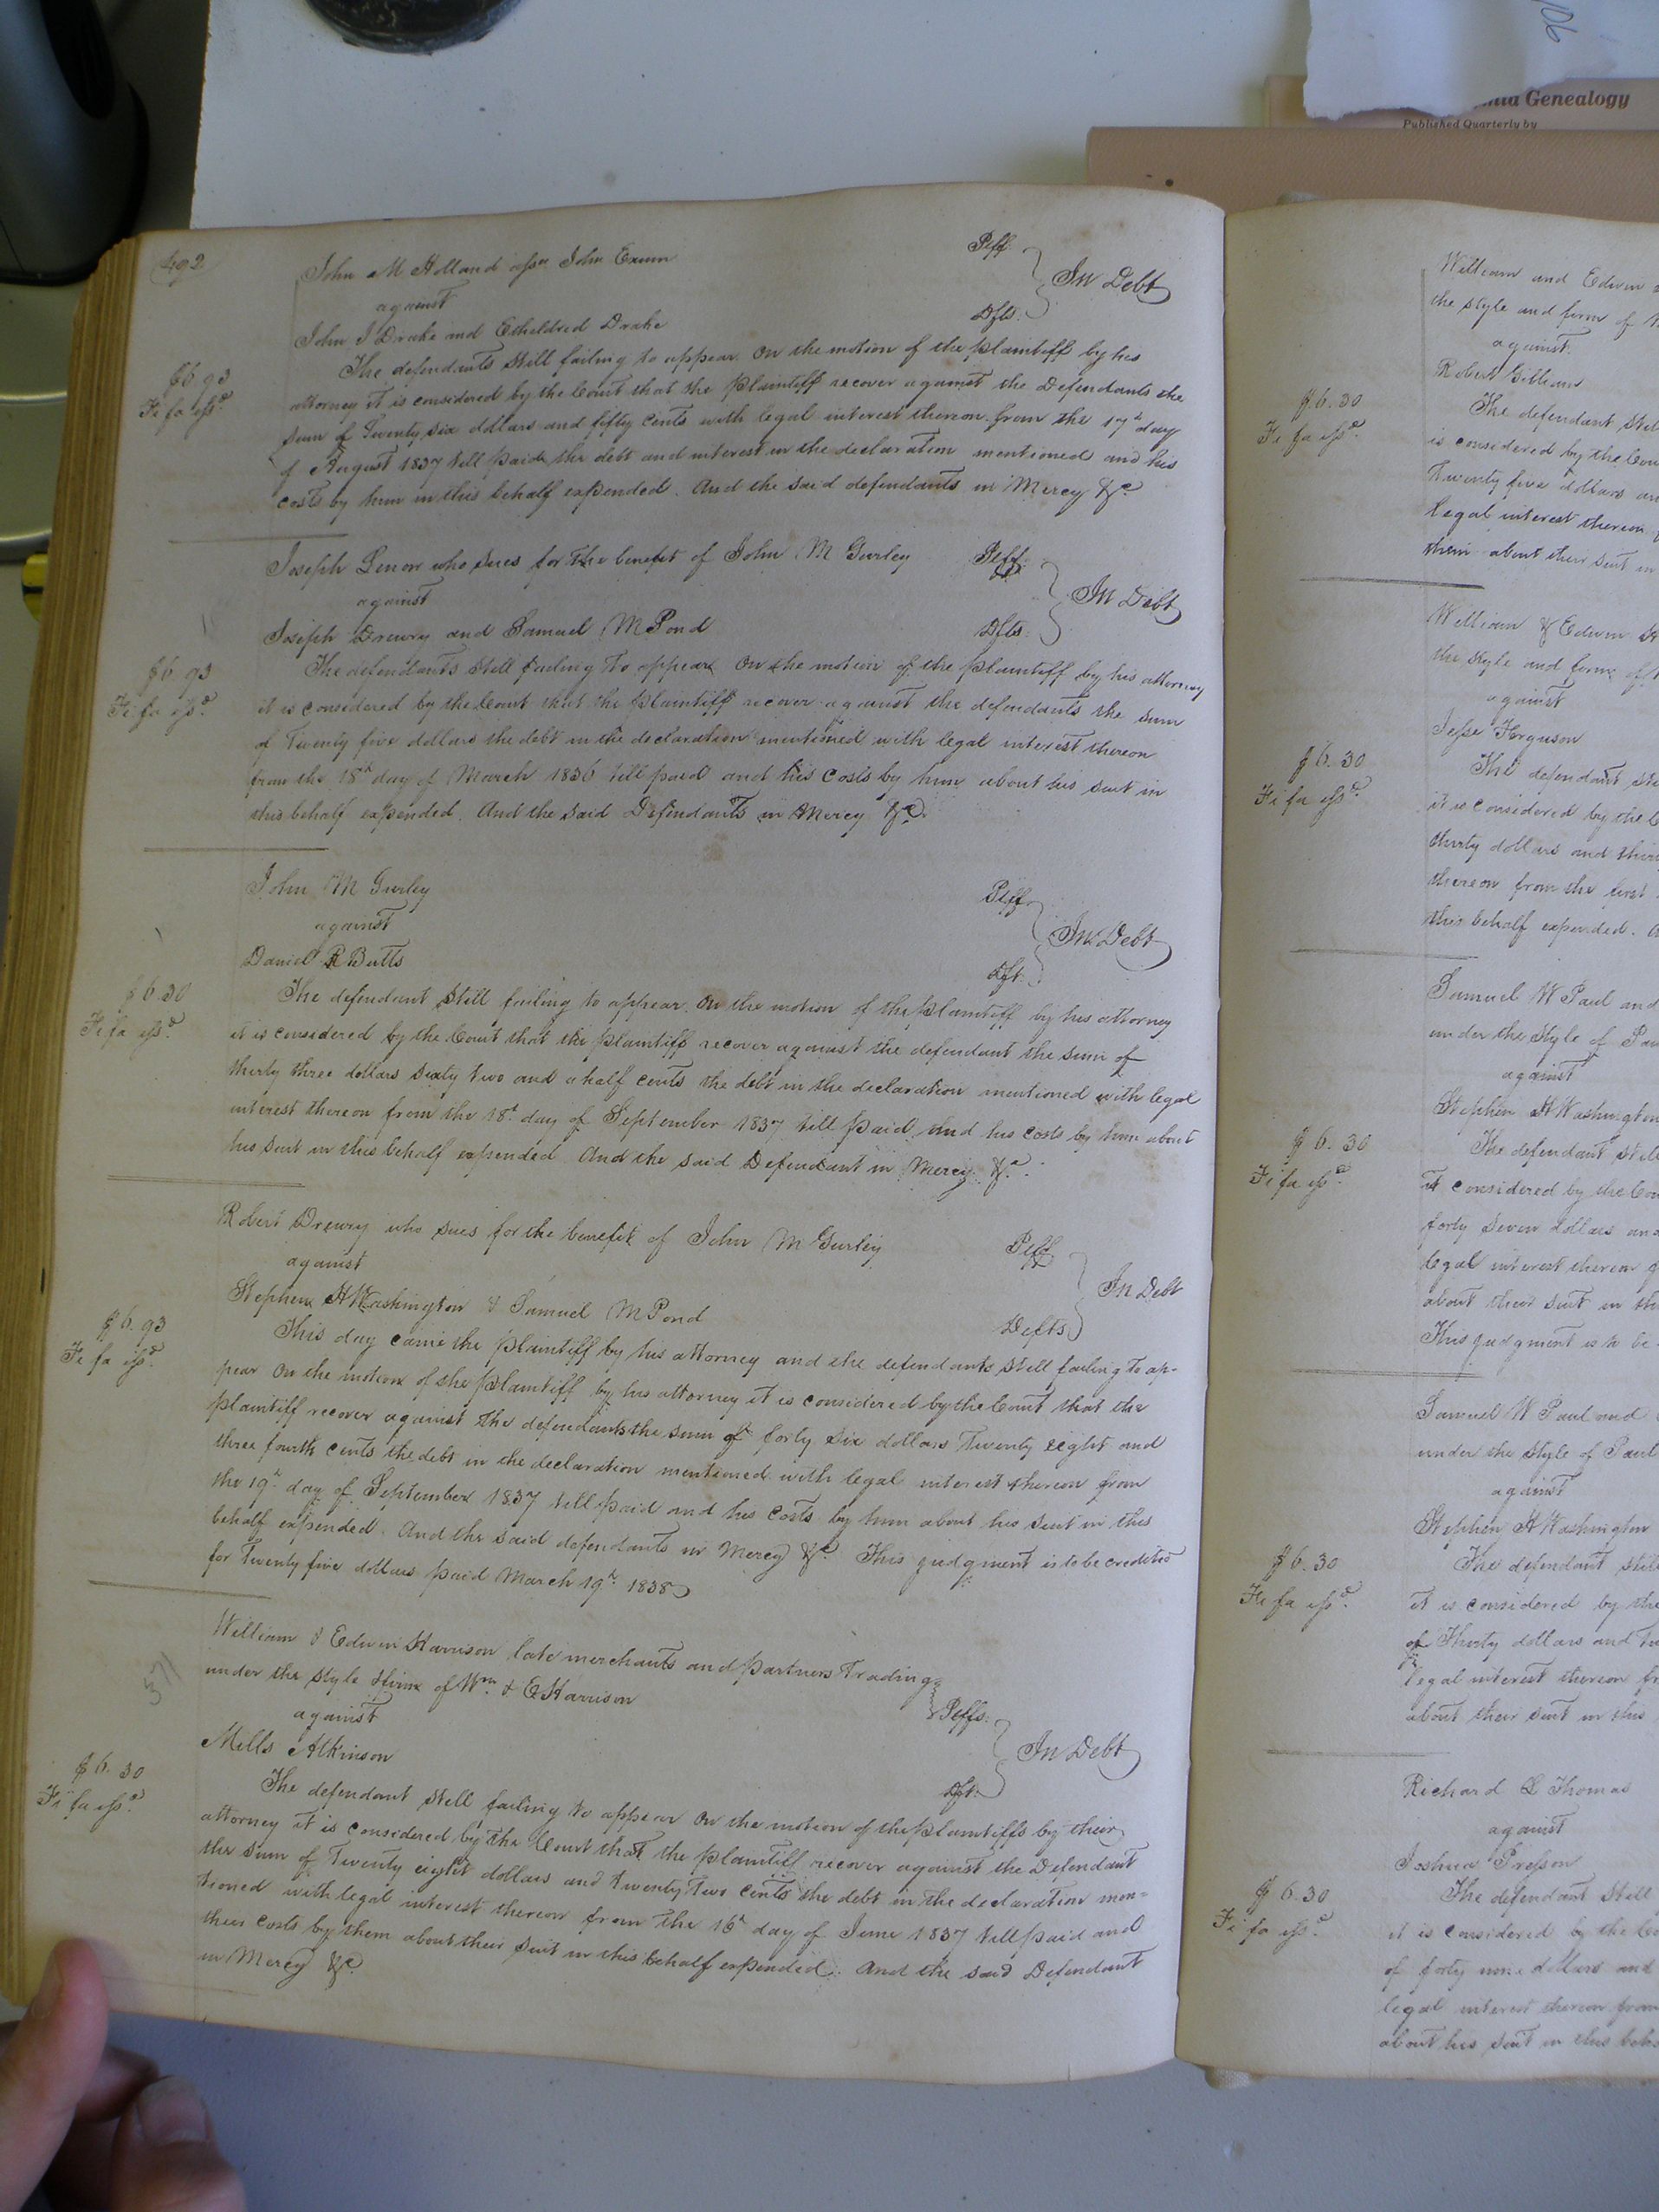 492
John M Holland assee John Exum Plff
against In Debt
John J Drake and Etheldred Drake Dfts.
The defendants still failing to appear. On the motion of the plaintiff by his
$6.93
attorney it is considered by the Court that the plaintiff recover against the Defendants the
Fi fa issd.
sum of Twenty six dollars and fifty cents with legal interest thereon from the 17th day
of August 1837 till paid the debt and interest in the declaration mentioned and his
costs by him in this behalf expended. And the said defendants in Mercy &c.
Joseph Lenow who sues for the benefit of John M Gurley Plff.
against In Debt
Joseph Drewry and Samuel M Pond Dfts.
The defendants still failing to appear On the motion of the plaintiff by his attorney
$6.93
it is considered by the Court that the plaintiff recover against the defendants the sum
Fi fa issd.
of Twenty five dollars the debt in the declaration mentioned with legal interest thereon
from the 18th day of March 1836 till paid and his costs by him about his suit in
this behalf expended. And the said Defendants in Mercy &c.
John M Gurley Plff.
against In Debt
Daniel R Butts Dft.
The defendant still failing to appear. On the motion of the plaintiff by his attorney
$6.30
it is considered by the Court that the plaintiff recover against the defendant the sum of
Fi fa issd.
thirty three dollars sixty two and a half cents the debt in the declaration mentioned with legal
interest thereon from the 18th day of September 1837 till paid and his costs by him about
his suit in this behalf expended And the said Defendant in Mercy &c.
Robert Drewry who sues for the benefit of John M Gurley Plff
against In Debt
Stephen H Washington & Samuel M Pond Defts
This day came the plaintiff by his attorney and the defendants still failing to ap-
$6.93
pear On the motion of the plaintiff by his attorney it is considered by the Court that the
Fi fa issd.
plaintiff recover against the defendants the sum of forty six dollars Twenty eight and
three fourth cents the debt in the declaration mentioned with legal interest thereon from
the 19th day of September 1837 till paid and his costs by him about his suit in this
behalf expended. And the said defendants in Mercy &c. This judgment is to be credited
for Twenty five dollars paid March 19th 1838
William & Edwin Harrison late merchants and partners Trading
371
under the style & firm of Wm. & E Harrison Plffs.
against In Debt
Mills Atkinson Dft.
The defendant still failing to appear On the motion of the plaintiffs by their
$6.30
attorney it is considered by the Court that the plaintiff recover against the Defendant
Fi fa issd.
the sum of Twenty eight dollars and twenty two cents the debt in the declaration men=
tioned with legal interest thereon from the 16th day of June 1837 till paid and
their costs by them about their suit in this behalf expended. And the said Defendant
in Mercy &c.
Genealogy
Published Quarterly by
William and Edwin
the style and form of
against
Robert Gilliam
$6.30
The defendant still
Fi fa issd.
is considered by the Cou
Twenty five dollars an
legal interest thereon
them about their suit in
William & Edwin H
the style and form of
against
Jesse Ferguson
$6.30
The defendant sti
Fi fa issd.
it is considered by the C
thirty dollars and thir
thereon from the first
this behalf expended.
Samuel W Paul and
under the style of Pau
against
Stephen H Washington
$6.30
The defendant still
Fi fa issd.
it considered by the Cou
forty seven dollars and
legal interest thereon f
about their suit in th
This judgment is to be
Samuel W Paul and
under the style of Paul
against
Stephen H Washington
$6.30
The defendant still
Fi fa issd.
it is considered by the
of Thirty dollars and Tw
legal interest thereon fr
about their suit in this
Richard L Thomas
against
Joshua Presson
$6.30
The defendant still
Fi fa issd.
it is considered by the Co
of forty nine dollars and
legal interest thereon from
about his suit in this beha